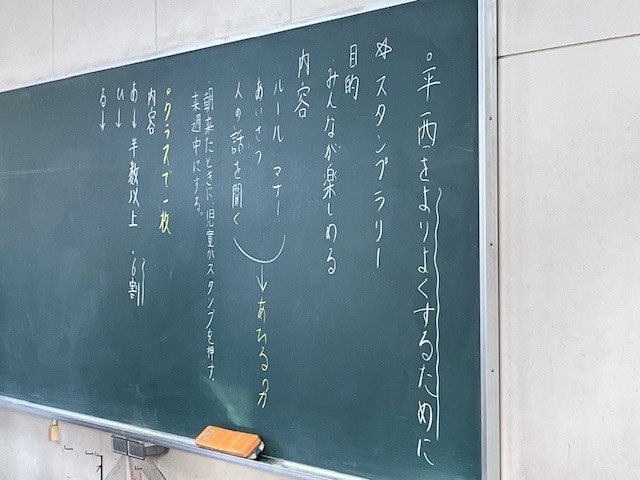 ・平西をよりよくするために
☆スタンプラリー
目的
みんなが楽しめる
内容
ルール マナー
あいさつ
人の話を聞く
→あひる分
・朝来たときに、児童がスタンプを押す。
来週中にする。
・クラスで一枚
内容
あ→半数以上 ・6割
ひ→
る→